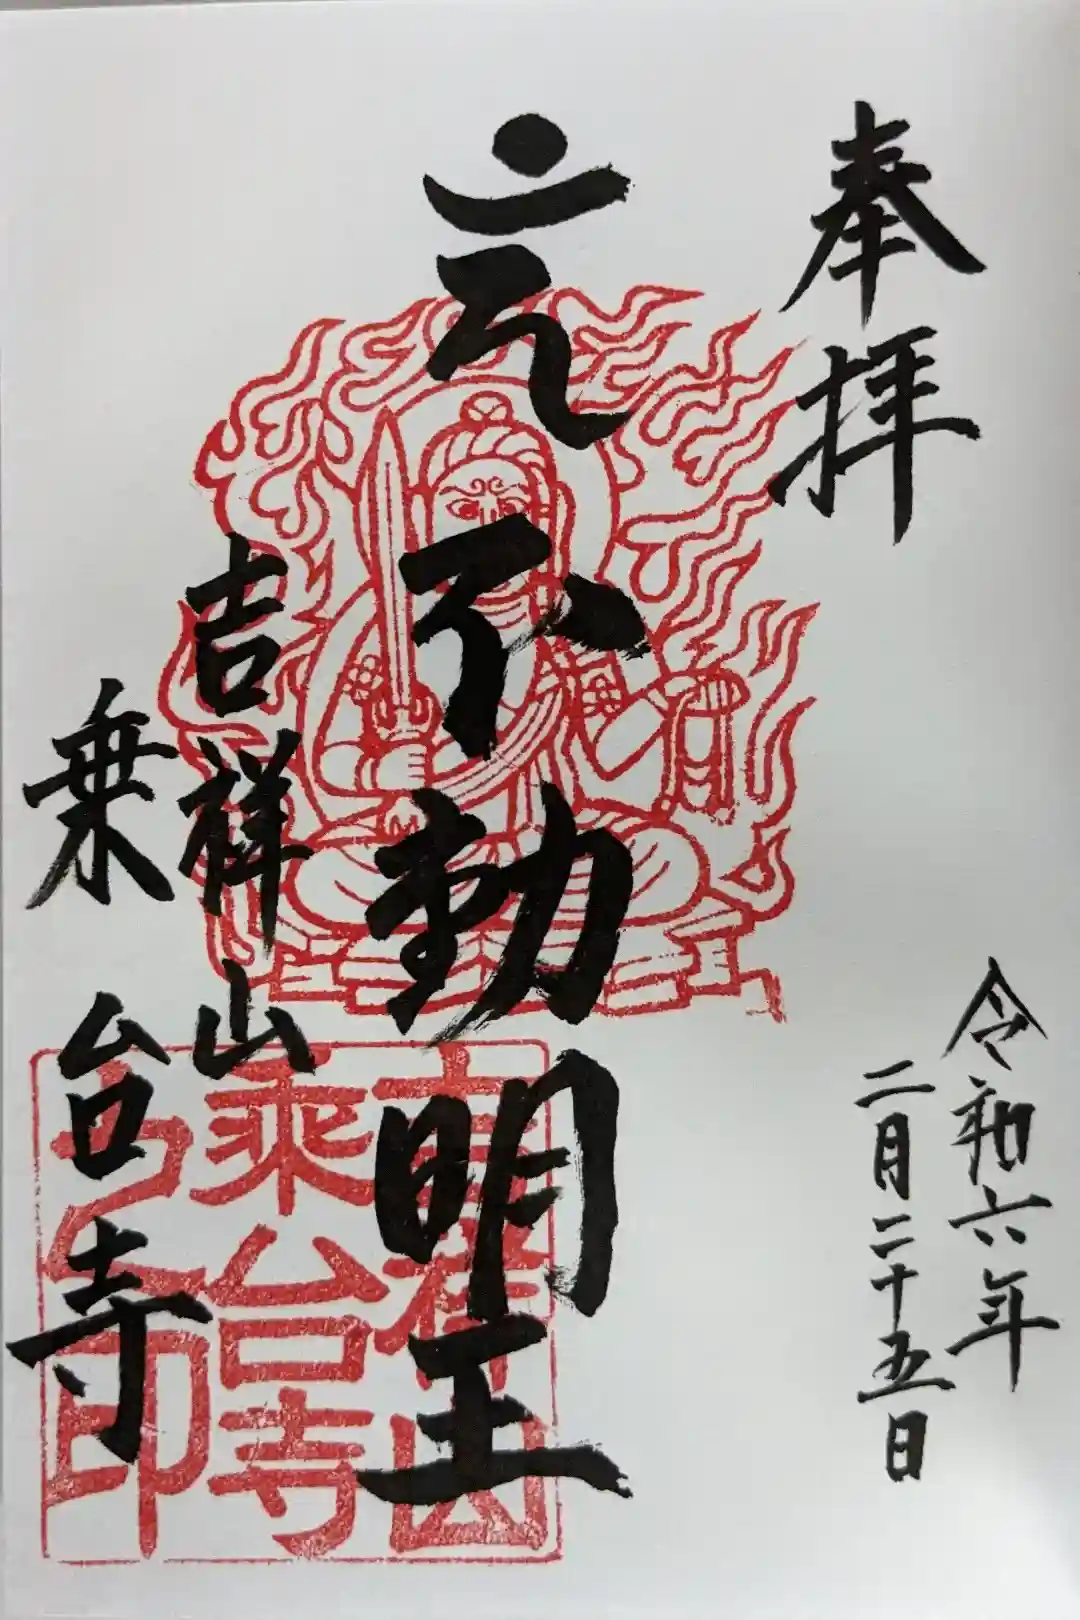 奉拝
令和六年
二月二十五日
不動明王
吉祥山
乗台寺
吉祥山
乗台寺
之印